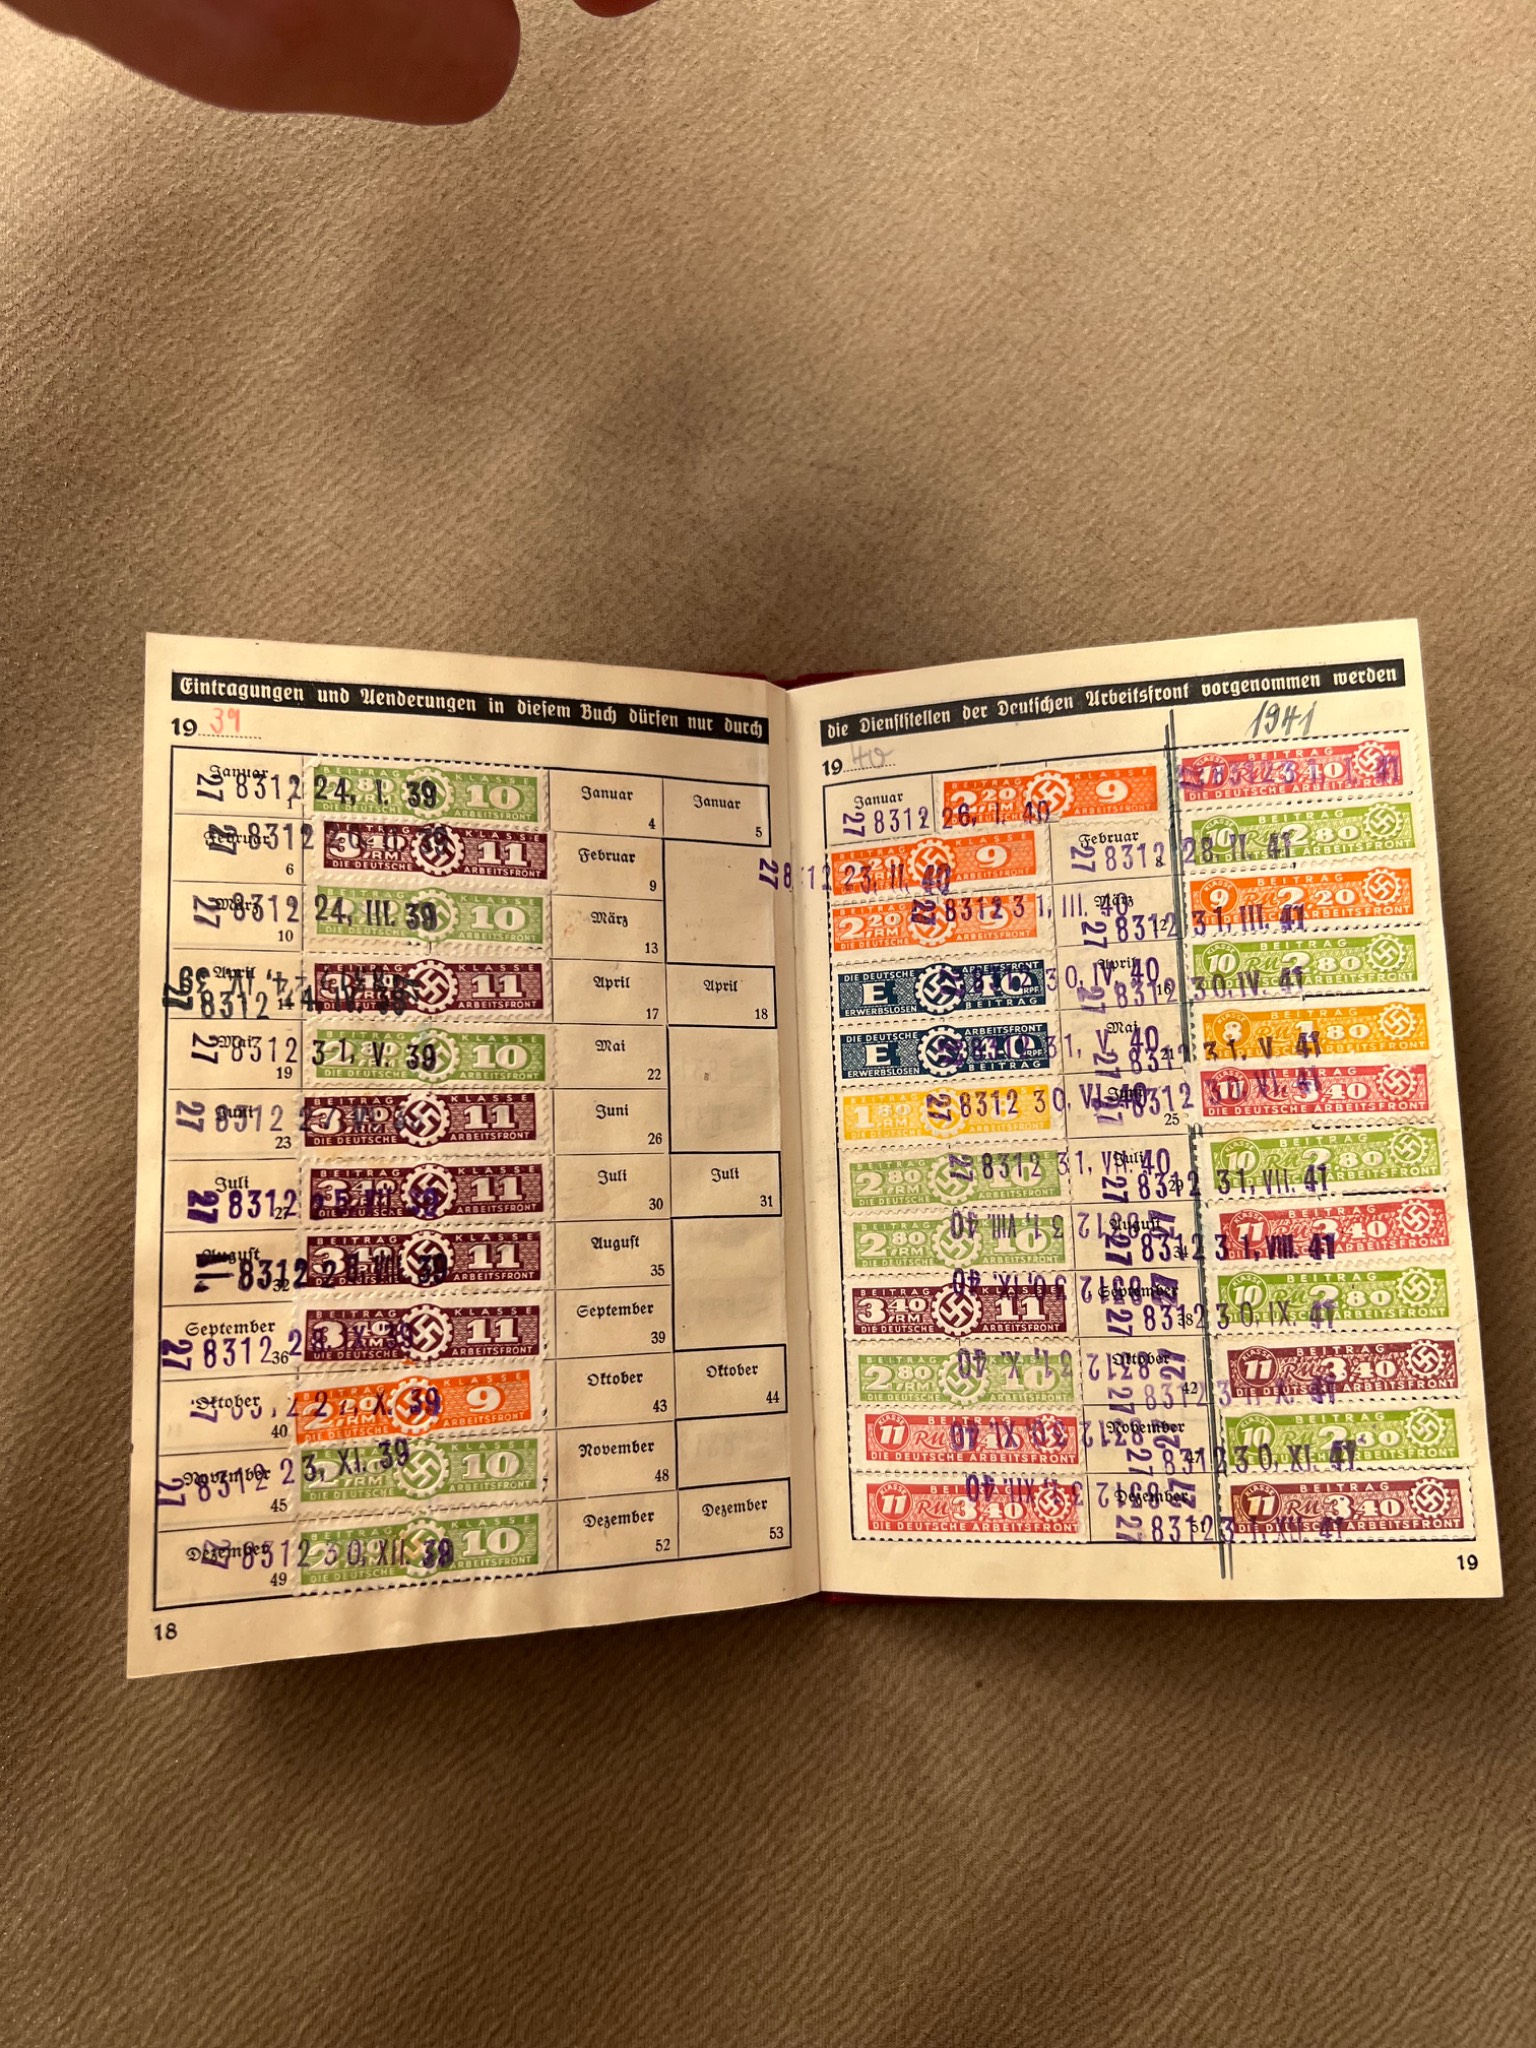 Eintragungen und Aenderungen in diesem Buch dürfen nur durch
19 39
Januar 27 8312 24. I. 39 BEITRAG KLASSE 10 DIE DEUTSCHE ARBEITSFRONT Januar 4 Januar 5
Februar 6 27 8312 39 KLASSE 11 DIE DEUTSCHE ARBEITSFRONT Februar 9
März 10 27 8312 24. III. 39 10 DIE DEUTSCHE ARBEITSFRONT März 13
April 14 27 8312 BEITRAG KLASSE 11 ARBEITSFRONT April 17 April 18
Mai 19 27 8312 31. V. 39 KLASSE 10 DIE DEUTSCHE ARBEITSFRONT Mai 22
Juni 23 27 8312 3 40 RM KLASSE 11 DIE DEUTSCHE ARBEITSFRONT Juni 26
Juli 27 27 8312 BEITRAG KLASSE 11 ARBEITSFRONT Juli 30 Juli 31
August 32 8312 39 KLASSE 11 DIE DEUTSCHE ARBEITSFRONT August 35
September 36 27 8312 39 BEITRAG KLASSE 11 DIE DEUTSCHE ARBEITSFRONT September 39
Oktober 40 X. 39 KLASSE 9 DIE DEUTSCHE ARBEITSFRONT Oktober 43 Oktober 44
November 45 27 8312 23. XI. 39 KLASSE 10 DIE DEUTSCHE ARBEITSFRONT November 48
Dezember 49 27 8312 30. XII. 39 BEITRAG KLASSE 10 DIE DEUTSCHE ARBEITSFRONT Dezember 52 Dezember 53
18
die Dienststellen der Deutschen Arbeitsfront vorgenommen werden
19 40 1941
Januar 27 8312 26. I. 40 BEITRAG 2 20 RM KLASSE 9 DIE DEUTSCHE ARBEITSFRONT BEITRAG 3 40 41
27 8312 23. II. 40 KLASSE 9 ARBEITSFRONT Februar 8 27 8312 28. II. 41 BEITRAG KLASSE 10 2 80 DIE DEUTSCHE ARBEITSFRONT
2 20 RM 27 8312 31. III. 40 DIE DEUTSCHE ARBEITSFRONT März 12 27 8312 31. III. 41 KLASSE 9 BEITRAG RM 2 20 ARBEITSFRONT
DIE DEUTSCHE E ERWERBSLOSEN ARBEITSFRONT BEITRAG 30. IV. 40 April 16 27 8312 30. IV. 41 KLASSE 10 BEITRAG RM 2 80 DIE DEUTSCHE ARBEITSFRONT
DIE DEUTSCHE E ERWERBSLOSEN ARBEITSFRONT BEITRAG 31. V. 40 Mai 21 27 8312 31. V. 41 8 BEITRAG 80 DIE DEUTSCHE ARBEITSFRONT
1 80 RM 27 8312 30. VI. 40 DIE DEUTSCHE ARBEITSFRONT Juni 25 8312 30. VI. 41 11 BEITRAG 3 40 DIE DEUTSCHE ARBEITSFRONT
2 80 RM 27 8312 31. VII. 40 DIE DEUTSCHE ARBEITSFRONT Juli 27 8312 31. VII. 41 KLASSE 10 BEITRAG RM 2 80 DIE DEUTSCHE ARBEITSFRONT
BEITRAG 2 80 RM 10 DIE DEUTSCHE ARBEITSFRONT 8312 31. VIII. 40 August 34 27 8312 31. VIII. 41 KLASSE 11 BEITRAG RM 3 40 DIE DEUTSCHE ARBEITSFRONT
BEITRAG 3 40 RM 11 DIE DEUTSCHE ARBEITSFRONT 27 8312 30. IX. 40 September 38 27 8312 30. IX. 41 KLASSE 10 BEITRAG RM 2 80 DIE DEUTSCHE ARBEITSFRONT
BEITRAG 2 80 RM 10 DIE DEUTSCHE ARBEITSFRONT 27 8312 31. X. 40 Oktober 42 27 8312 41 KLASSE 11 BEITRAG RM 3 40 DIE DEUTSCHE ARBEITSFRONT
KLASSE 11 BEITRAG RM DIE DEUTSCHE ARBEITSFRONT 27 8312 30. XI. 40 November 47 27 8312 30. XI. 41 KLASSE 10 BEITRAG RM 2 80 DIE DEUTSCHE
KLASSE 11 BEITRAG RM 3 40 DIE DEUTSCHE ARBEITSFRONT 27 8312 31. XII. 40 Dezember 51 27 8312 XII. 41 KLASSE 11 BEITRAG RM 3 40 ARBEITSFRONT
19